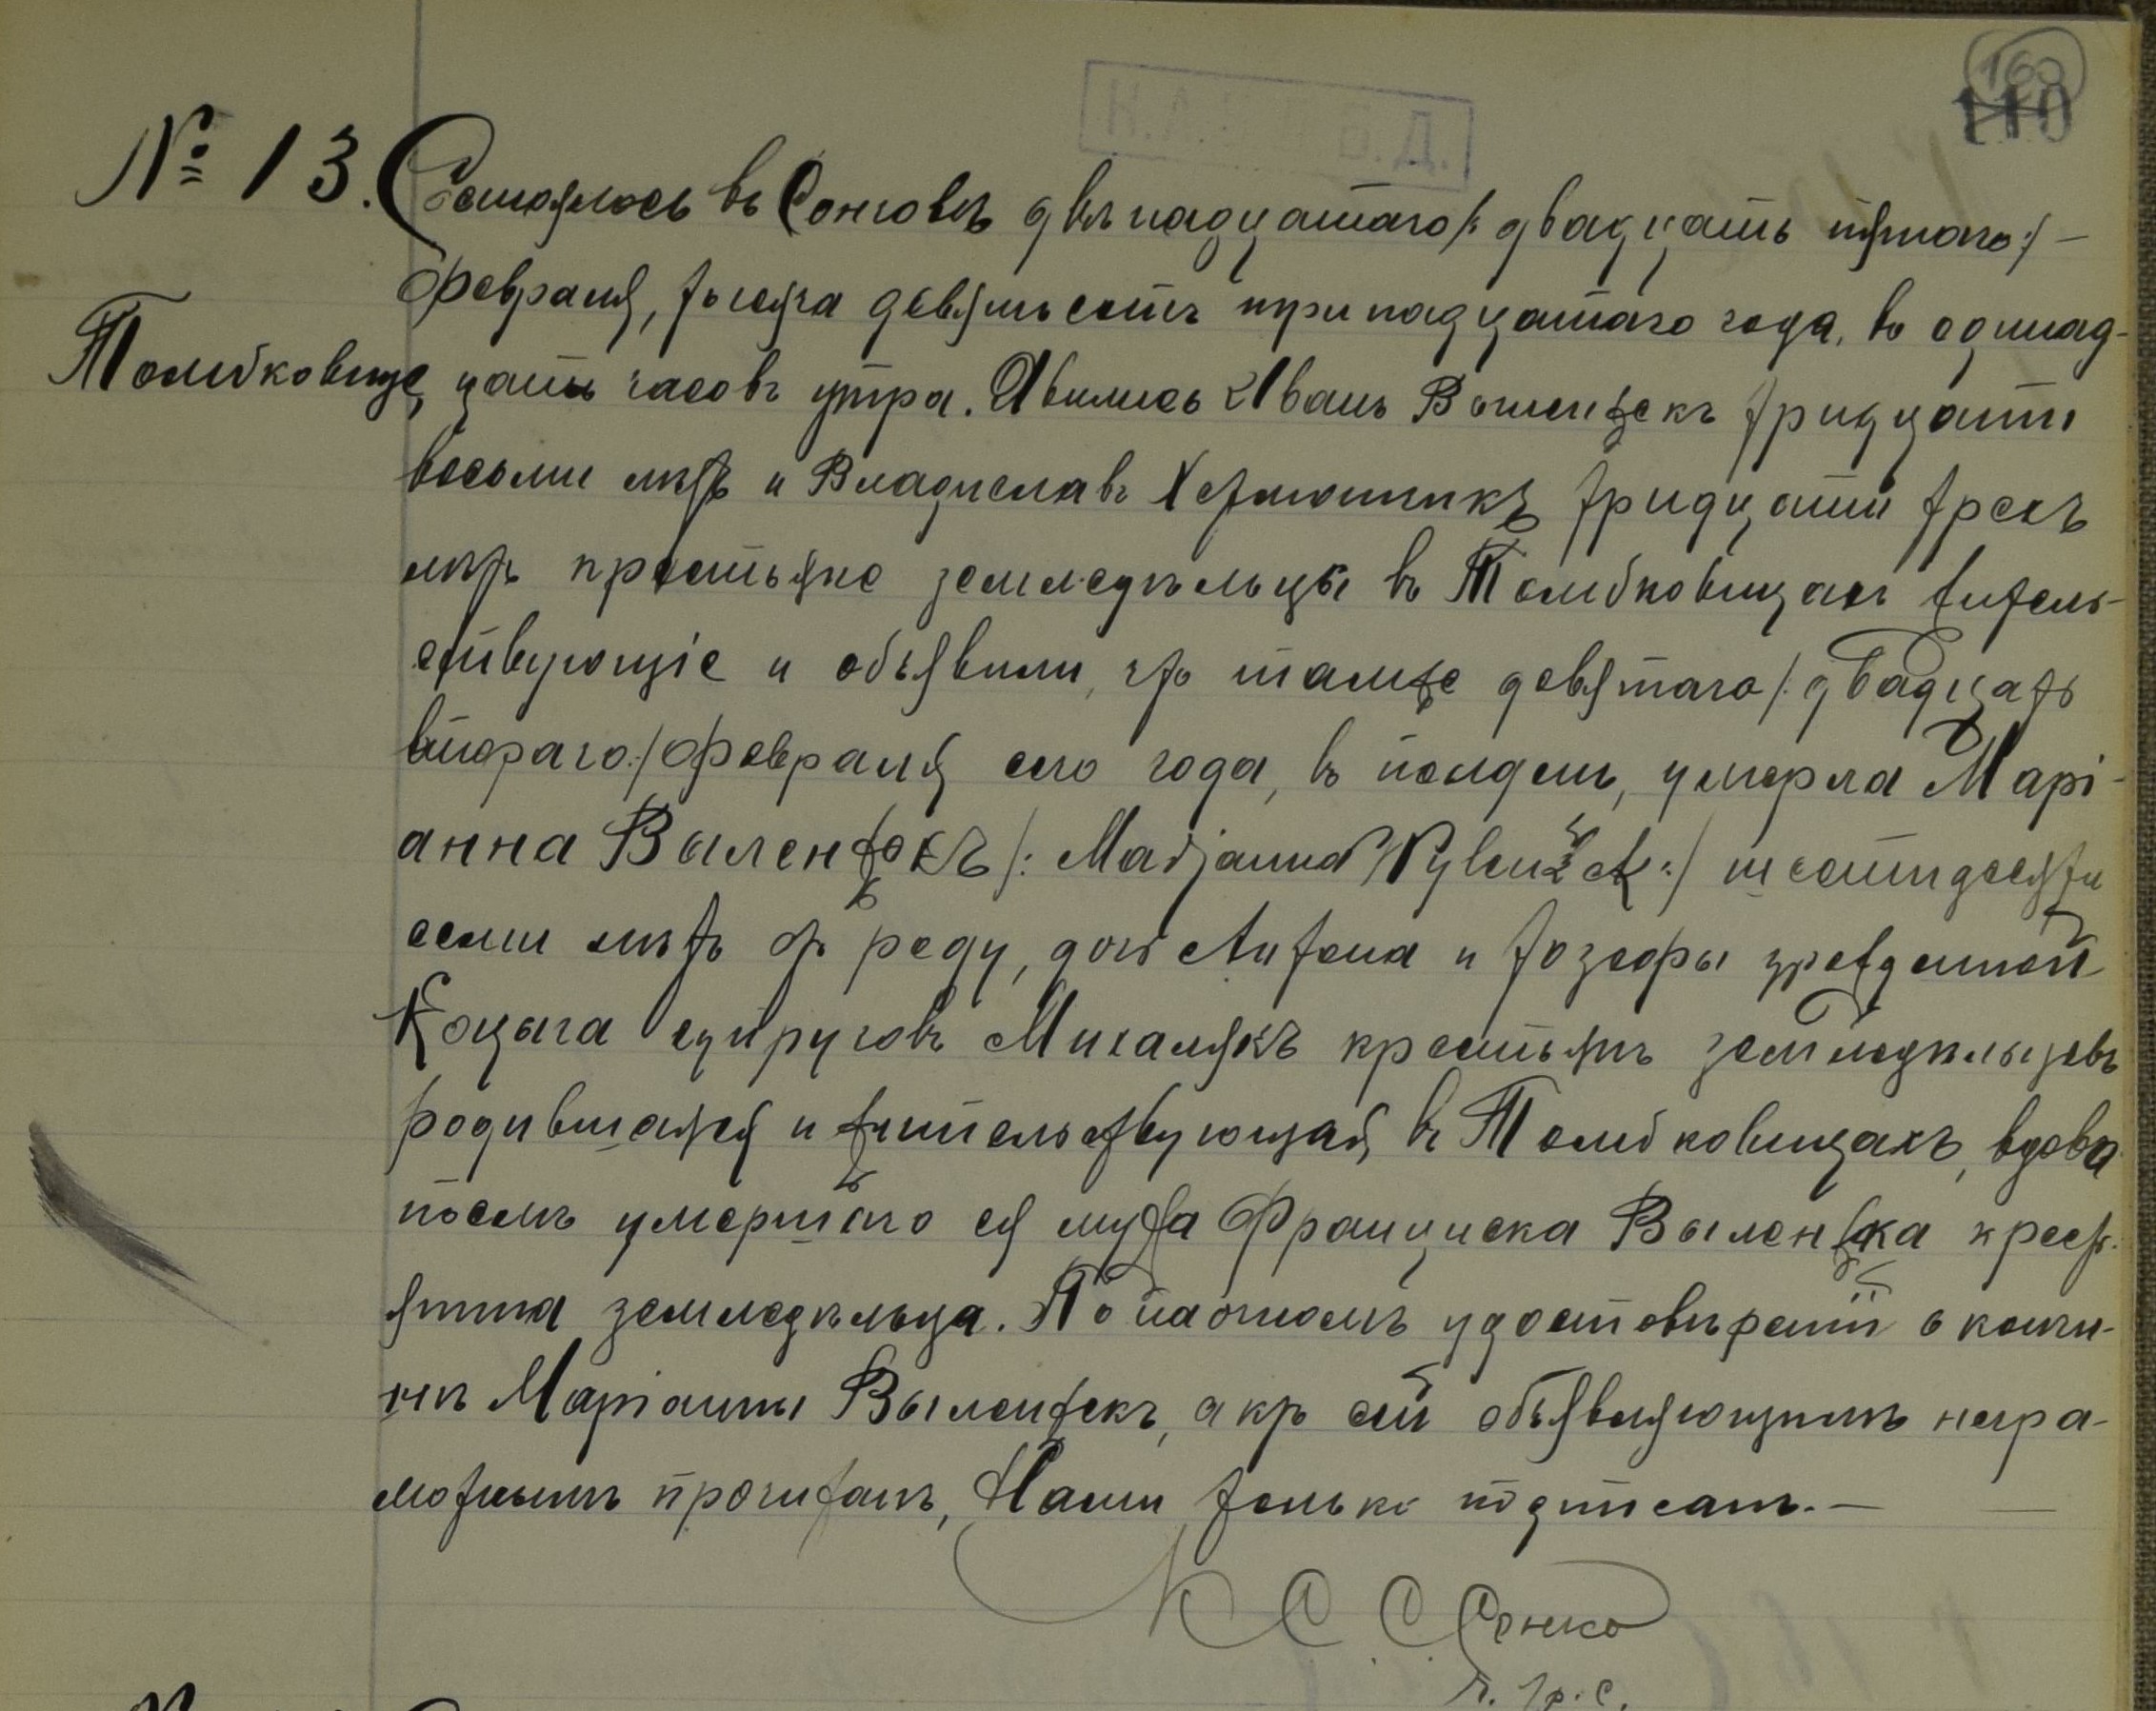 160
110
№ 13. Состоялось въ Сонговѣ двѣнадцатаго /: двадцать пятаго :/ —
Февраля, тысяча девятьсотъ тринадцатаго года, въ одинад-
Толибковице, цать часовъ утра. Явились Иванъ Выленжекъ тридцати
восьми лѣтъ и Владиславъ тридцати трехъ
лѣтъ крестьяне земледѣльцы въ Толибковицахъ житель-
ствующіе и объявили, что тамже девятаго /: двадцать
втораго :/ Февраля сего года, въ полдень, умерла Марі-
анна Выленжекъ /: Marjanna Wylenżek :/ шестидесяти
семи лѣтъ отъ роду, дочь Антона и Іозефы урожденной
Коцыга супруговъ Михалякъ крестьянъ земледѣльцевъ
родившаяся и жительствующая въ Толибковицахъ, вдова
послѣ умершаго ея мужа Франциска Выленжка крест-
янина земледѣльца. По наочномъ удостовѣреніи о кончи-
нѣ Маріанны Выленжекъ, актъ сей объявляющимъ негра-
мотнымъ прочитанъ, Нами только подписанъ. —